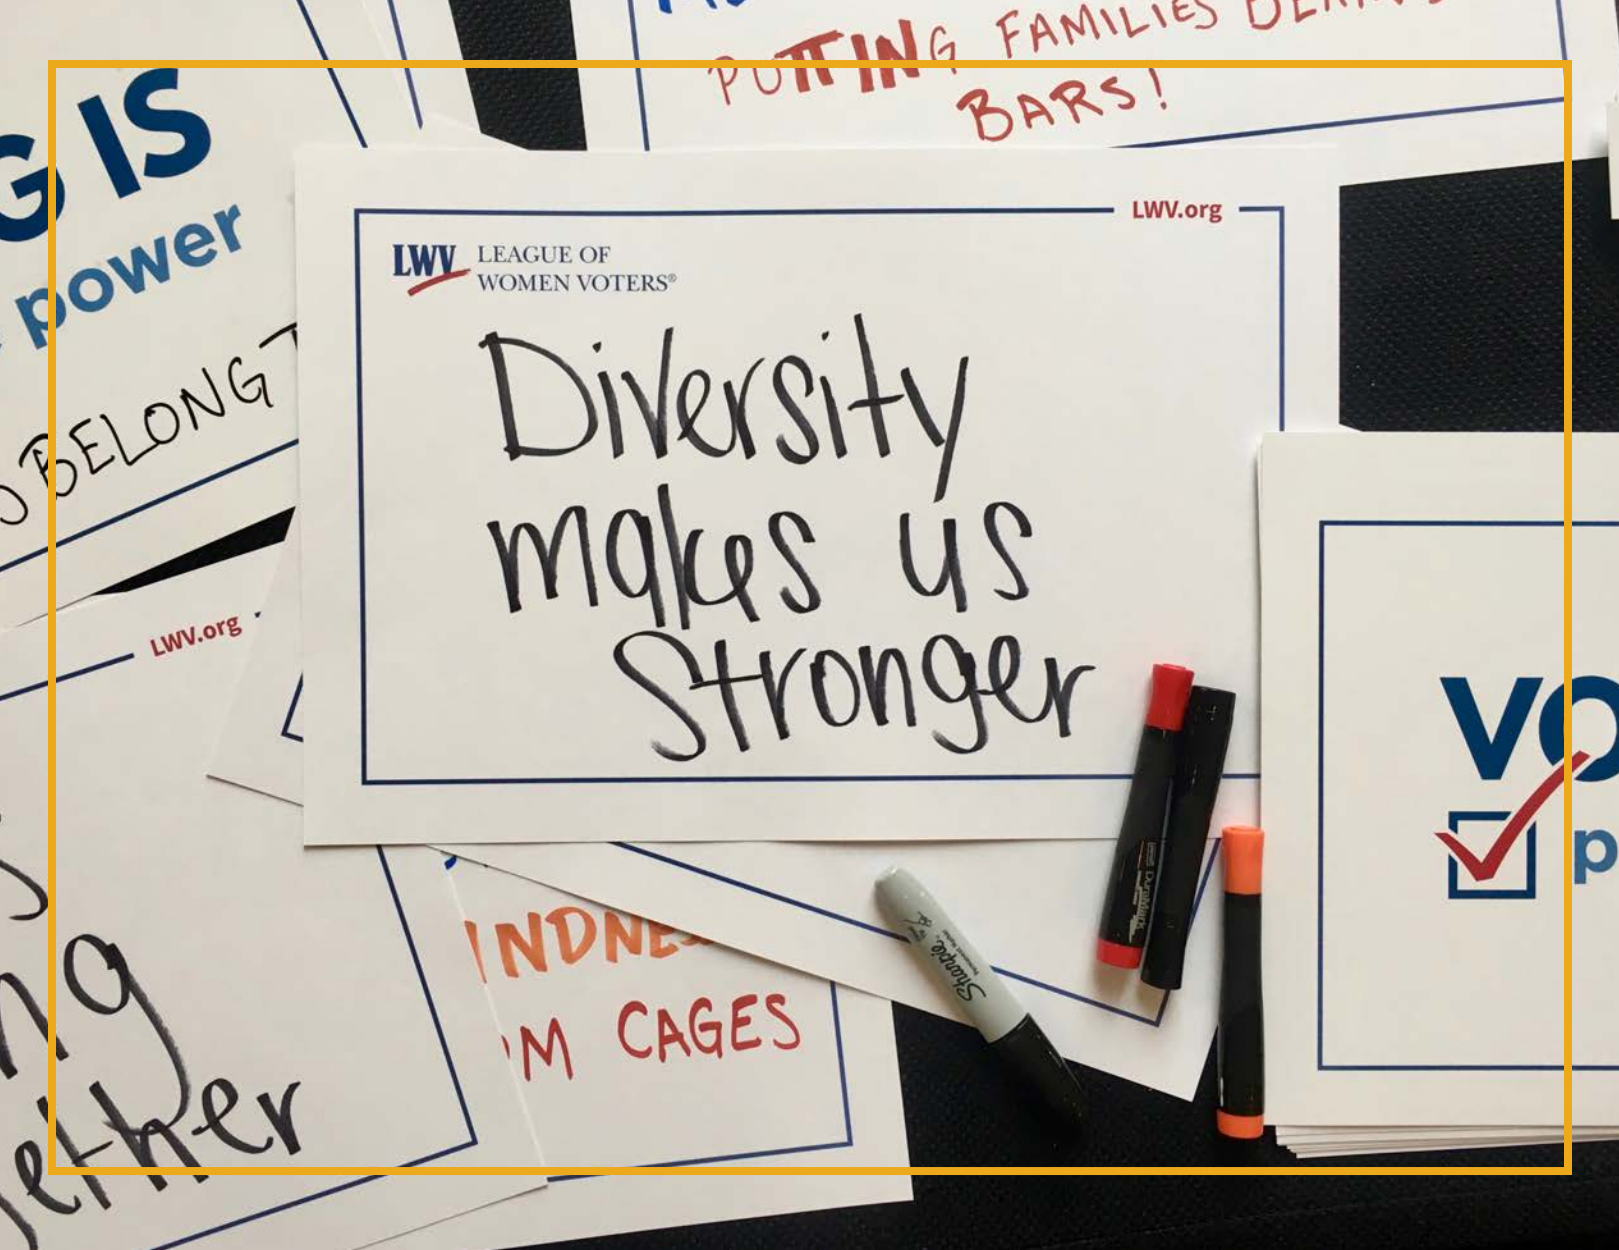 PUTTING FAMILIES
BARS!
G IS
power
BELONG
LWV.org
LWV LEAGUE OF
WOMEN VOTERS®
Diversity
makes us
Stronger
LWV.org
VO
p
INDNES
M CAGES
Sharpie
ng
gether